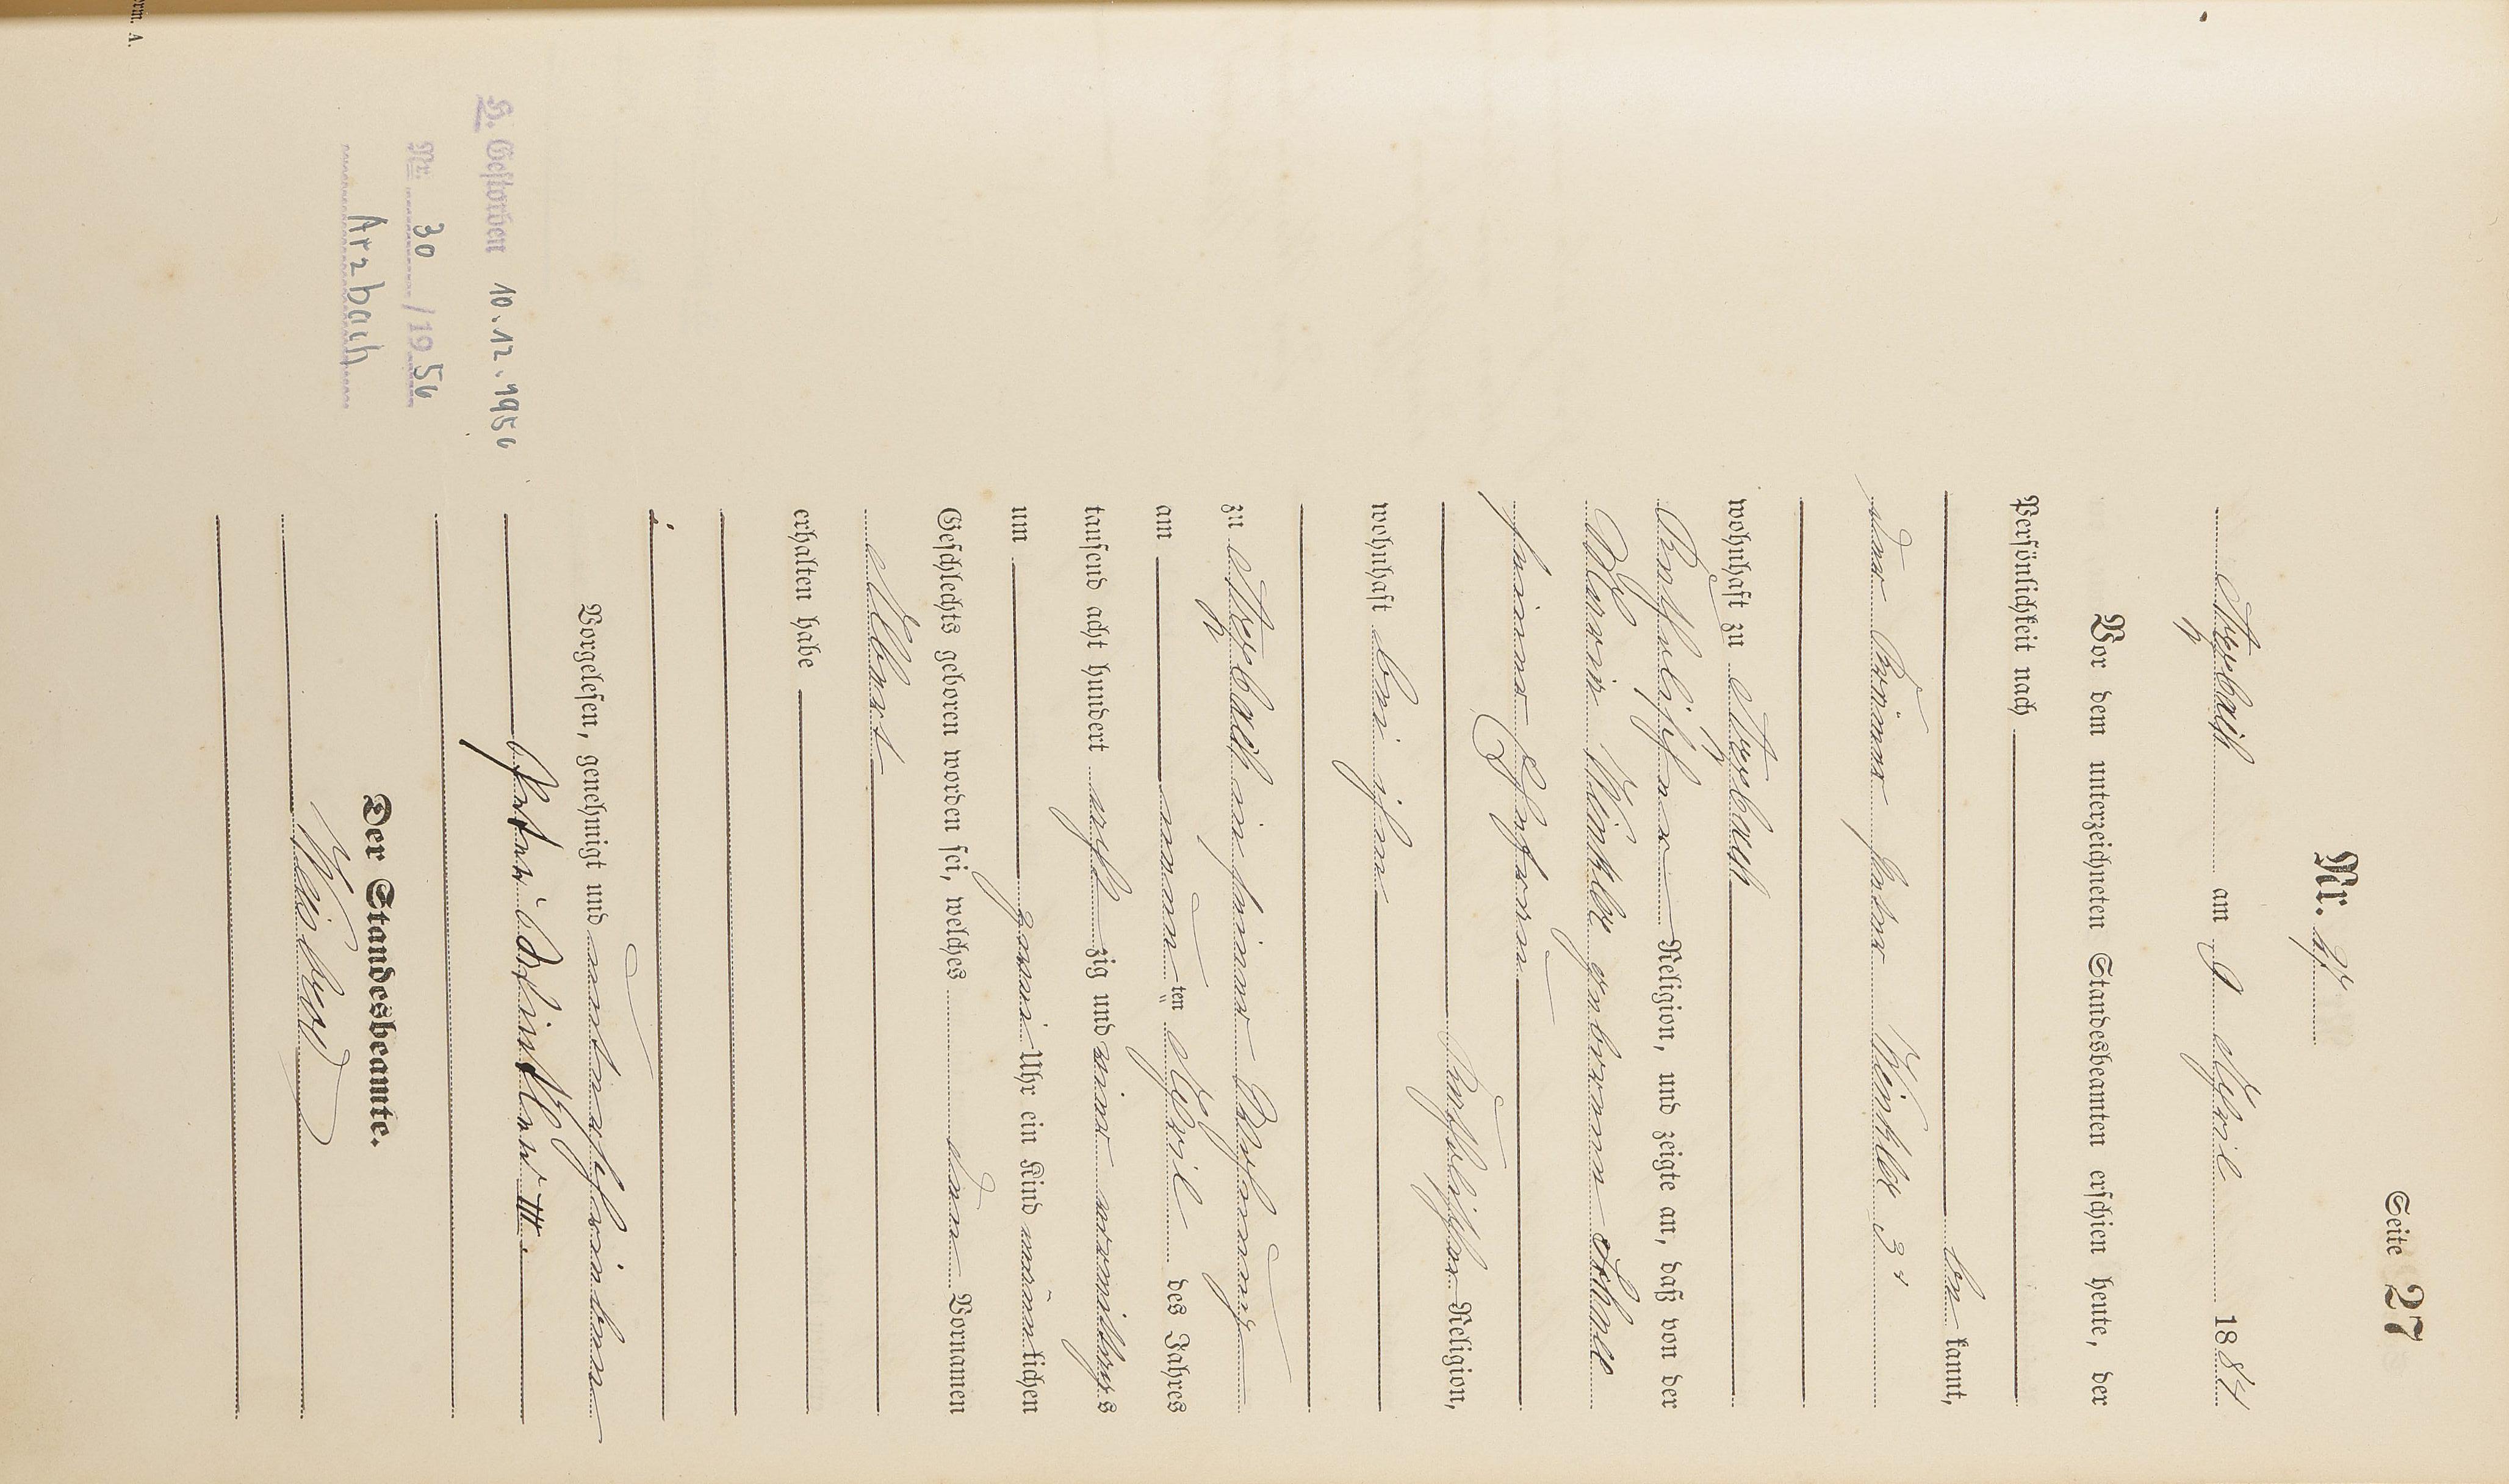 Seite 27
Nr. 27
Arzbach am 9 April 1884
Vor dem unterzeichneten Standesbeamten erschien heute, der
Persönlichkeit nach
be kannt,
der Peter Winkler 3r
wohnhaft zu Arzbach
katholischer Religion, und zeigte an, daß von der
Maria Winkler geborenen
seiner Ehefrau
katholischer Religion,
wohnhaft bei ihm
zu Arzbach in seiner Wohnung
am neunten April des Jahres
tausend acht hundert acht zig und vier vormittags
um zwei Uhr ein Kind männlichen
Geschlechts geboren worden sei, welches den Vornamen
Albert
erhalten habe
Vorgelesen, genehmigt und unterschrieben
Peter Winkler III.
Der Standesbeamte.
H. Gestorben 10.12.1956
Nr. 30 / 1956
Arzbach
rm. A.